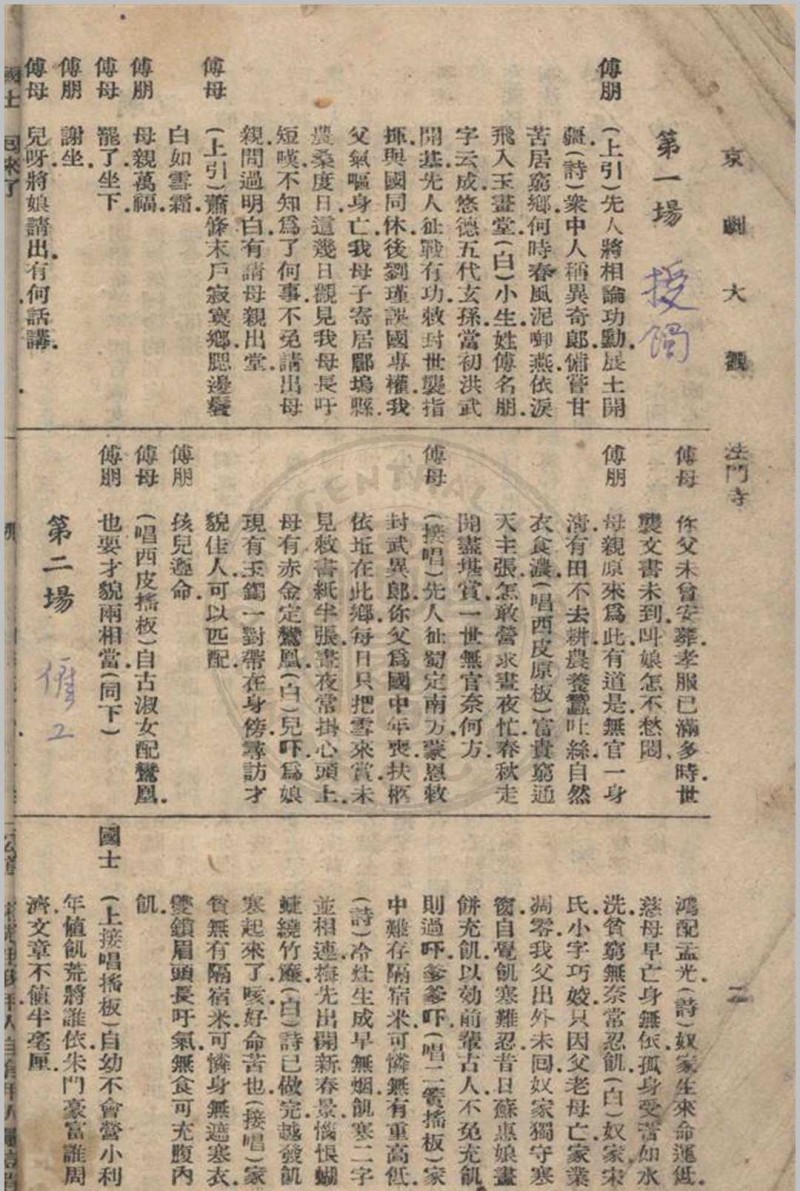 京劇大觀
法門寺
二
第一場
授镯
傅朋
(上引)先人將相論功勳.展土開
疆.(詩)衆中人稱異奇郞.傭嘗甘
苦居窮鄉.何時春風泥啣燕.依淚
飛入玉畫堂.(白)小生.姓傅名朋.
字云成.悠德五代玄孫.當初洪武
開基.先人征戰有功.敕封世襲指
揮.與國同休.後劉瑾誤國專權.我
父氣嘔身亡.我母子寄居郿塢縣.
農桑度日.這幾日觀見我母長吁
短嘆.不知爲了何事.不免請出母
親.問過明白.有請母親出堂.
傅母
(上引)蕭條末戶寂寞鄉.腮邊鬢
白如雪霜.
傅朋
母親萬福.
傅母
罷了.坐下.
傅朋
謝坐.
傅母
兒呀.將娘請出.有何話講.
國士
回來了
傅母
你父未曾安葬.孝服已滿多時.世
襲文書未到.叫娘怎不愁悶.
傅朋
母親原來爲此.有道是無官一身
淸.有田不去耕.農養蠶吐絲自然
衣食濃.(唱西皮原板)富貴窮通
天主張.怎敢營求晝夜忙.春秋走
開盡堪賞.一世無官奈何方.
傅母
(接唱)先人征蜀定南方.蒙恩敕
封武異郞.你父爲國中年喪.扶柩
依垢在此鄉.每日只把雪來賞.未
見敕書紙半張.晝夜常掛心頭上.
母有赤金定鸞凰.(白)兒吓.爲娘
現有玉鐲一對.帶在身傍.尋訪才
貌佳人.可以匹配.
傅朋
孩兒遵命.
傅母
(唱西皮搖板)自古淑女配鸞凰.
傅朋
也要才貌兩相當.(同下)
第二場
僱工
鴻配孟光.(詩)奴家生來命運低.
慈母早亡身無依.孤身受苦如水
洗.貧窮無奈常忍飢.(白)奴家宋
氏.小字巧姣.只因父老母亡.家業
凋零.我父出外未回.奴家獨守寒
窗.自覺飢寒難忍.昔日蘇惠娘畫
餅充飢.以効前輩古人.不免充飢
則過.吓.爹爹吓.(唱二簧搖板)家
中難存隔宿米.可憐無有重高低.
(詩)冷灶生成早無烟.飢寒二字
並相連.梅先出開新春景.惱恨蝴
蝶繞竹簾.(白)詩已做完.越發飢
寒起來了.咳.好命苦也.(接唱)家
貧無有隔宿米.可憐身無遮寒衣.
雙鎖眉頭長吁氣.無食可充腹內
飢.
國士
(上接唱搖板)自幼不會營小利.
年値飢荒將誰依.朱門豪富誰周
濟.文章不値半毫厘.